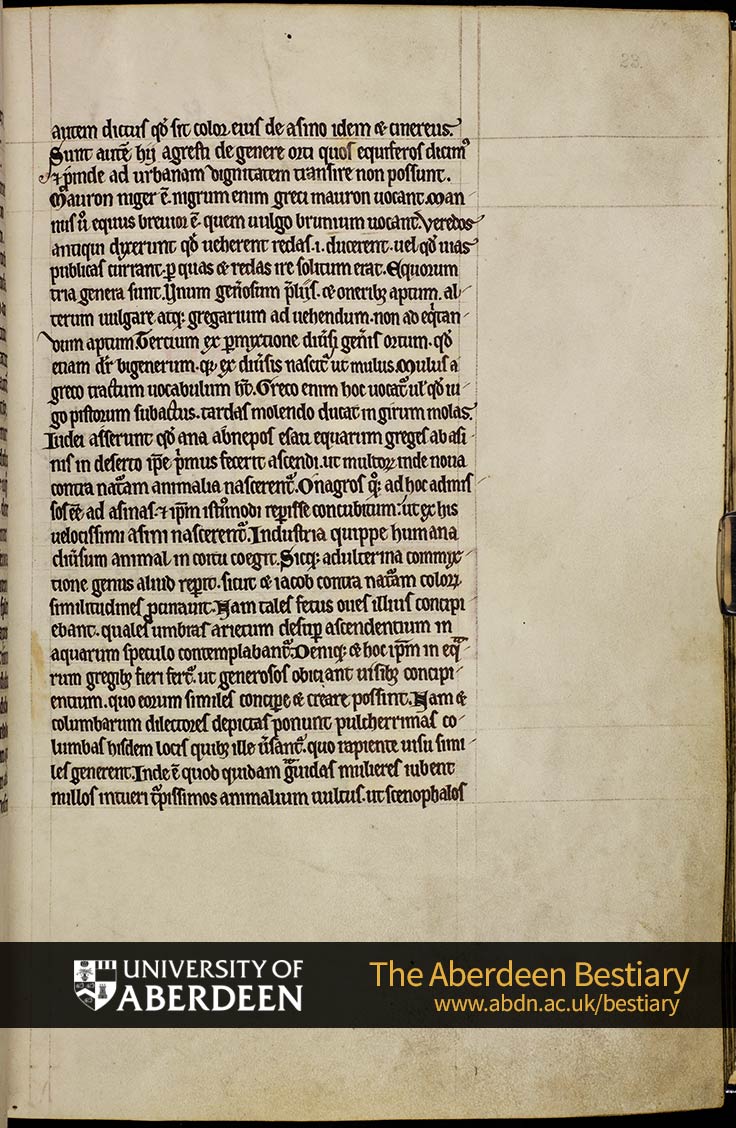 23.
autem dictus qđ sit color eius de asino idem & cinereus.
Sunt autē hij agresti de genere orti quos equiferos dicimꝰ
⁊ ꝓinde ad urbanam dignitatem transire non possunt.
Mauron niger ē. nigrum enim greci mauron uocant. Man
nus ů equus breuior ē. quem uulgo brunium uocant. Veredos
antiqui dyxerunt qđ ueherent redas .i. ducerent. uel qđ uias
publicas currant. ꝑ quas & redas ire solitum erat. Equorum
tria genera sunt. Vnum geňosum p̄lijs. & oneribꝫ aptum. al
terum uulgare atqꝫ gregarium ad uehendum. non ad eq̇tan
dum aptum. Tertium ex ꝑmyxtione diůsi geňis ortum. qđ
etiam dr̄ bigenerum. qꝛ ex diůsis nascit᷑ ut mulus. Mulus a
greco tractum uocabulum hт̄. Greco enim hoc uocat᷑ ul̕ qđ iu
go pistorum subactus. tardas molendo ducat in girum molas.
Iudei asserunt qđ ana abnepos esau equarum greges ab asi
nis in deserto ip̄e ṗmus fecerit ascendi. ut multoꝝ inde noua
contra nat᷑am animalia nascerent᷑. Onagros qꝫ ad hoc admis
sos eē ad asinas. ⁊ ip̄m istiusmodi repperisse concubitum. ut ex his
uelocissimi asini nascerent᷑. Industria quippe humana
diůsum animal in coitu coegit. Sicqꝫ adulterina commyx
tione genus aliud repperit. sicut & iacob contra nat᷑am coloꝝ
similitudines ꝓcurauit. Nam tales fetus oues illius concipi
ebant. quales umbras arietum desuper ascendentium in
aquarum speculo contemplabant᷑. Deniqꝫ & hoc ip̄m in eq
rum gregibꝫ fieri fert᷑. ut generosos obiciant uisibꝫ concipi
entium. quo eorum similes concipe & creare possint. Nam &
columbarum dilectores depictas ponunt pulcherrimas co
lumbas hisdem locis quibꝫ ille ůsant᷑. quo rapiente uisu simi
les generent. Inde ē quod quidam grauidas mulieres iubent
nullos intueri turpissimos animalium uultus. ut scenophalos
UNIVERSITY OF
ABERDEEN
The Aberdeen Bestiary
www.abdn.ac.uk/bestiary